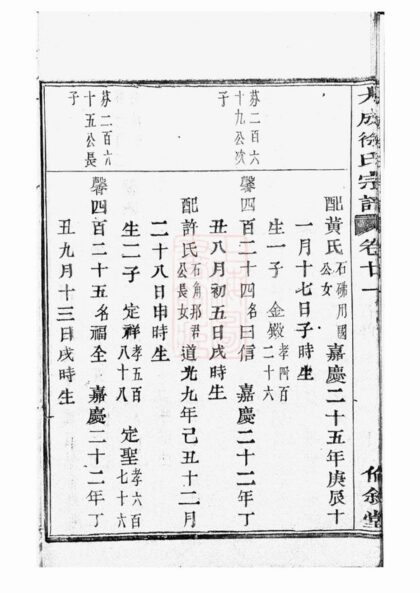 丹成徐氏宗譜 卷十一 倫敘堂
配黃氏石硤用國公女 嘉慶二十五年庚辰十
一月十七日子時生
生一子 金鍛孝四百二十六
芬二百六十九公次子
馨四百二十四名曰信 嘉慶二十二年丁
丑八月初五日戌時生
配許氏石角邦君公長女 道光九年己丑十二月
二十八日申時生
生二子 定祥孝五百八十八 定聖孝六百七十六
芬二百六十五公長子
馨四百二十五名福全 嘉慶二十二年丁
丑九月十三日戌時生